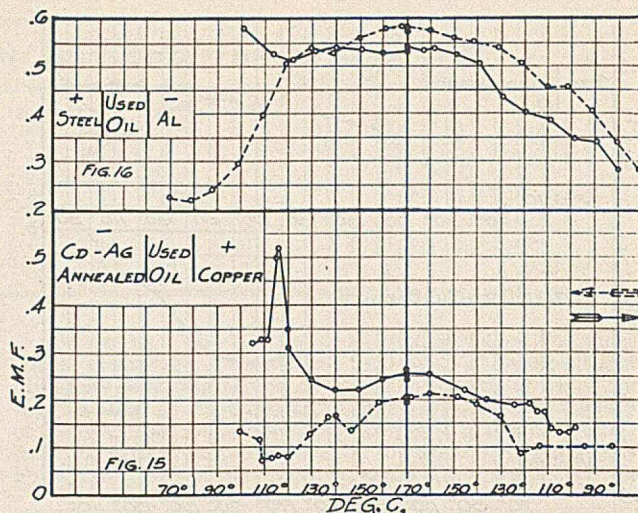 .6
.5
.4
.3
.2
+ −
STEEL USED OIL AL
FIG. 16
− +
CD-AG ANNEALED USED OIL COPPER
.5
.4
.3
.2
.1
0
E.M.F.
FIG. 15
70° 90° 110° 130° 150° 170° 150° 130° 110° 90°
DEG. C.